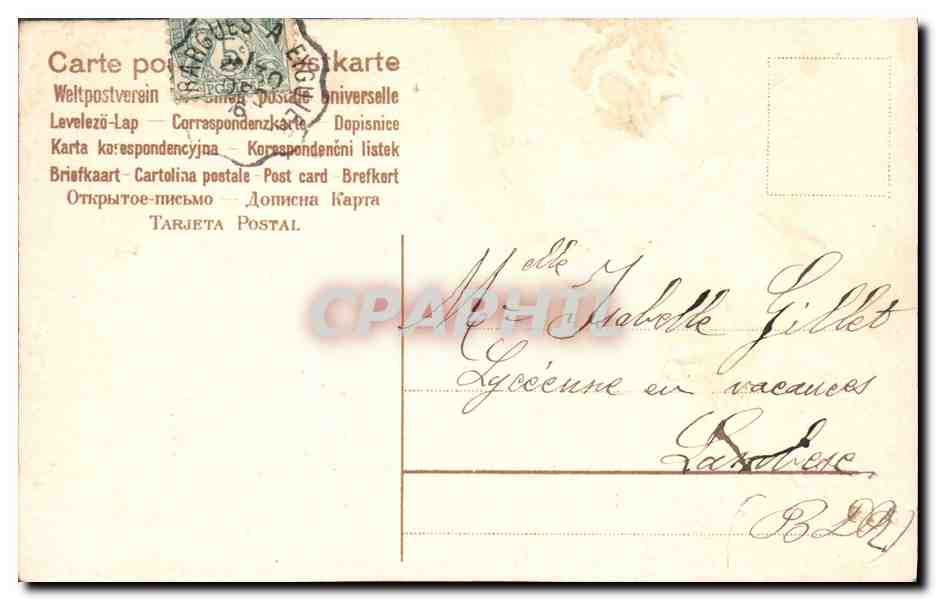 BARGUES A EYGUIE
5
Carte po stkarte
Weltpostverein postale universelle
Levelező-Lap — Correspondenzkarte — Dopisnice
Karta korespondencyjna — Korespondenčni listek
Briefkaart - Cartolina postale - Post card - Brefkort
Открытое-письмо — Дописна Карта
Tarjeta Postal
CPAPHIL
Melle Isabelle Gillet
Lycéenne en vacances
Lambesc
(BDR)